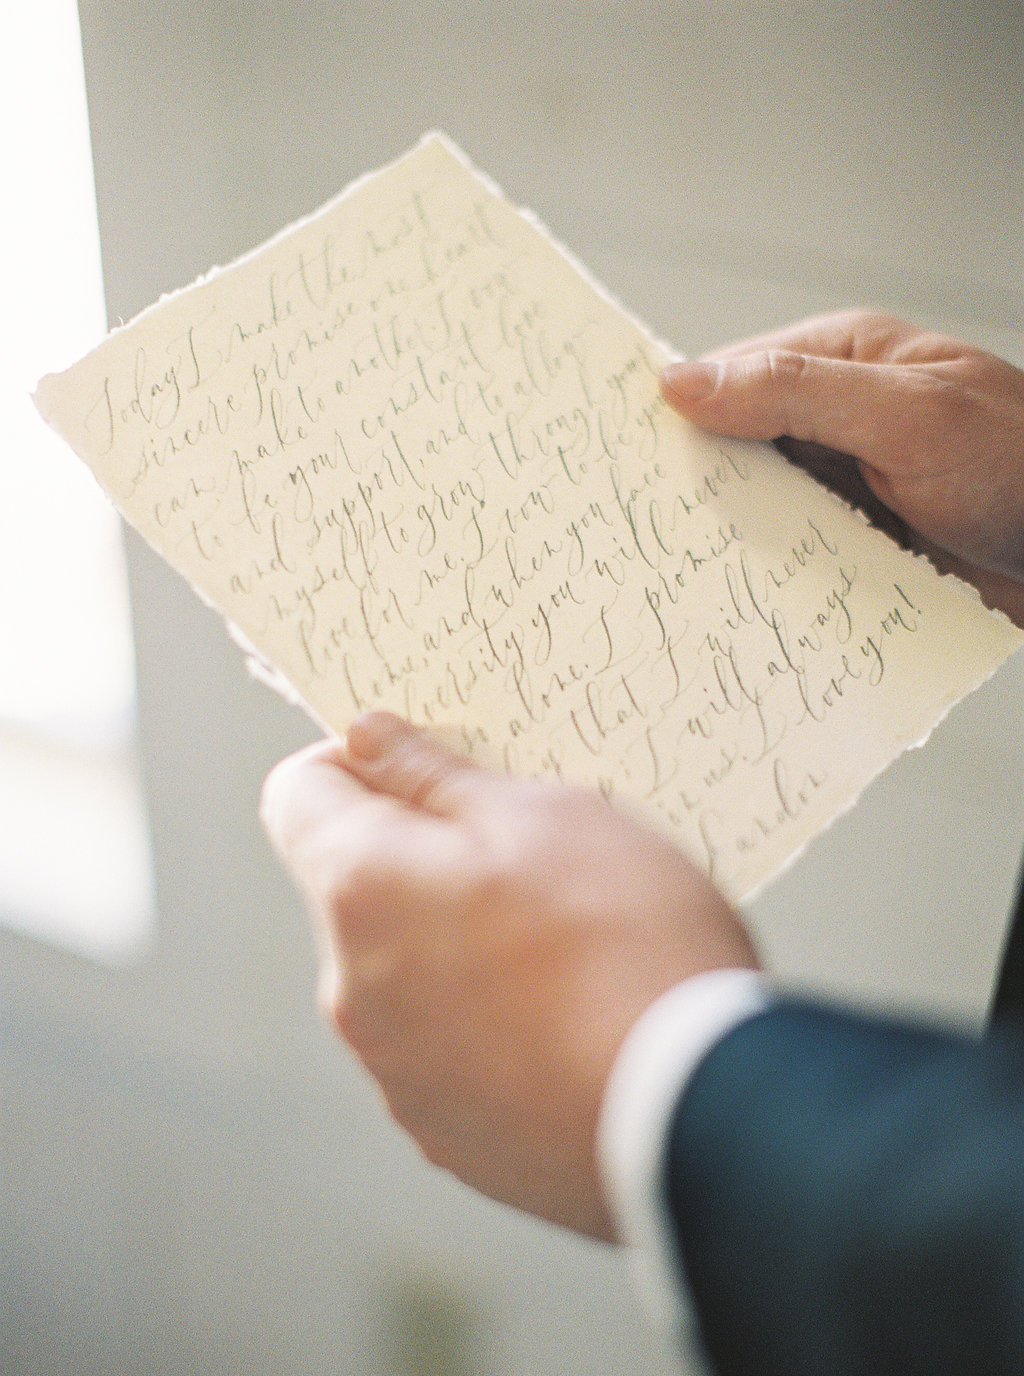 Today I make the most
sincere promise one heart
can make to another. I vow
to be your constant love
and support, and to allow
myself to grow through your
love for me. I vow to be your
home, and when you face
adversity you will never
so alone. I promise
that I will never
: I will always
in us. I love you!
Landon